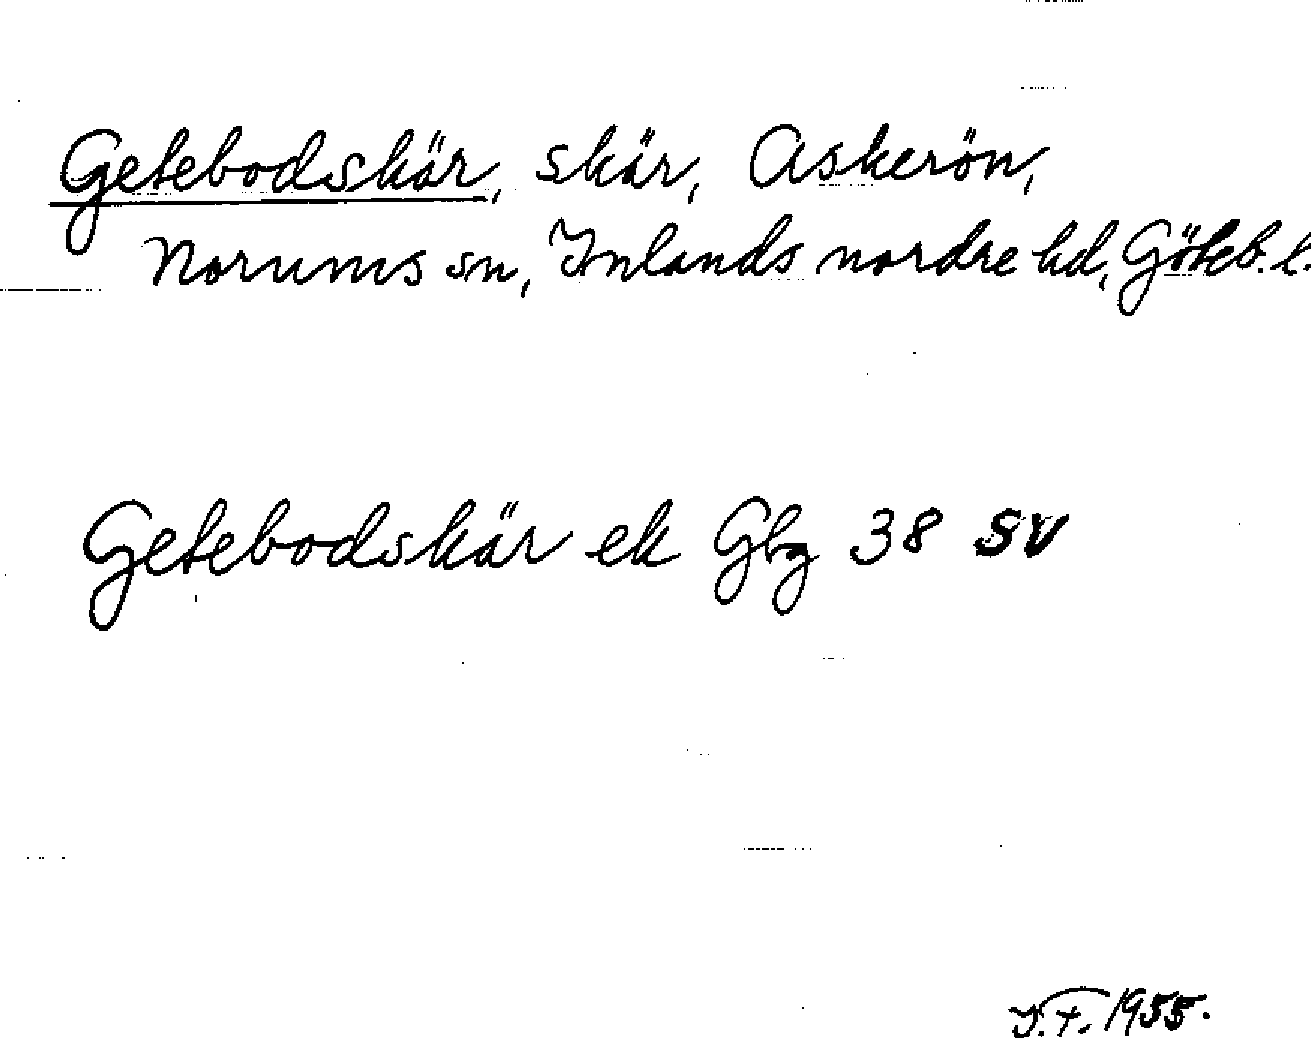 Getebodskär, skär, Askerön,
Norums sn, Inlands nordre hd, Göteb. l.
Getebodskär ek Gbg 38 SV
1955.